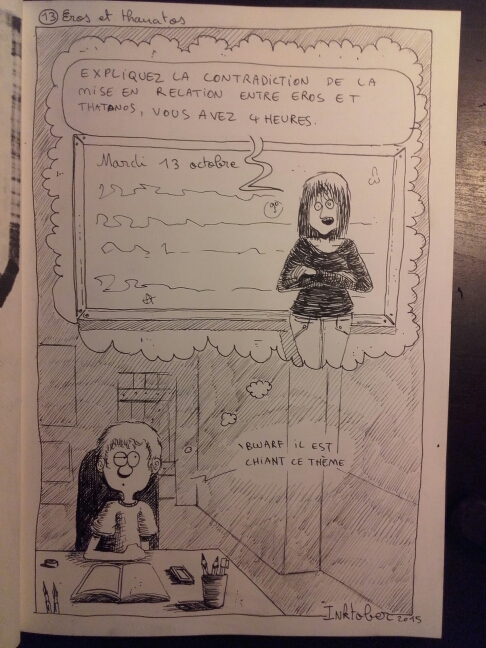 13 Eros et thanatos
EXPLIQUEZ LA CONTRADICTION DE LA
MISE EN RELATION ENTRE EROS ET
THATANOS, VOUS AVEZ 4 HEURES.
Mardi 13 octobre
BWARF IL EST
CHIANT CE THÈME
Inktober 2015